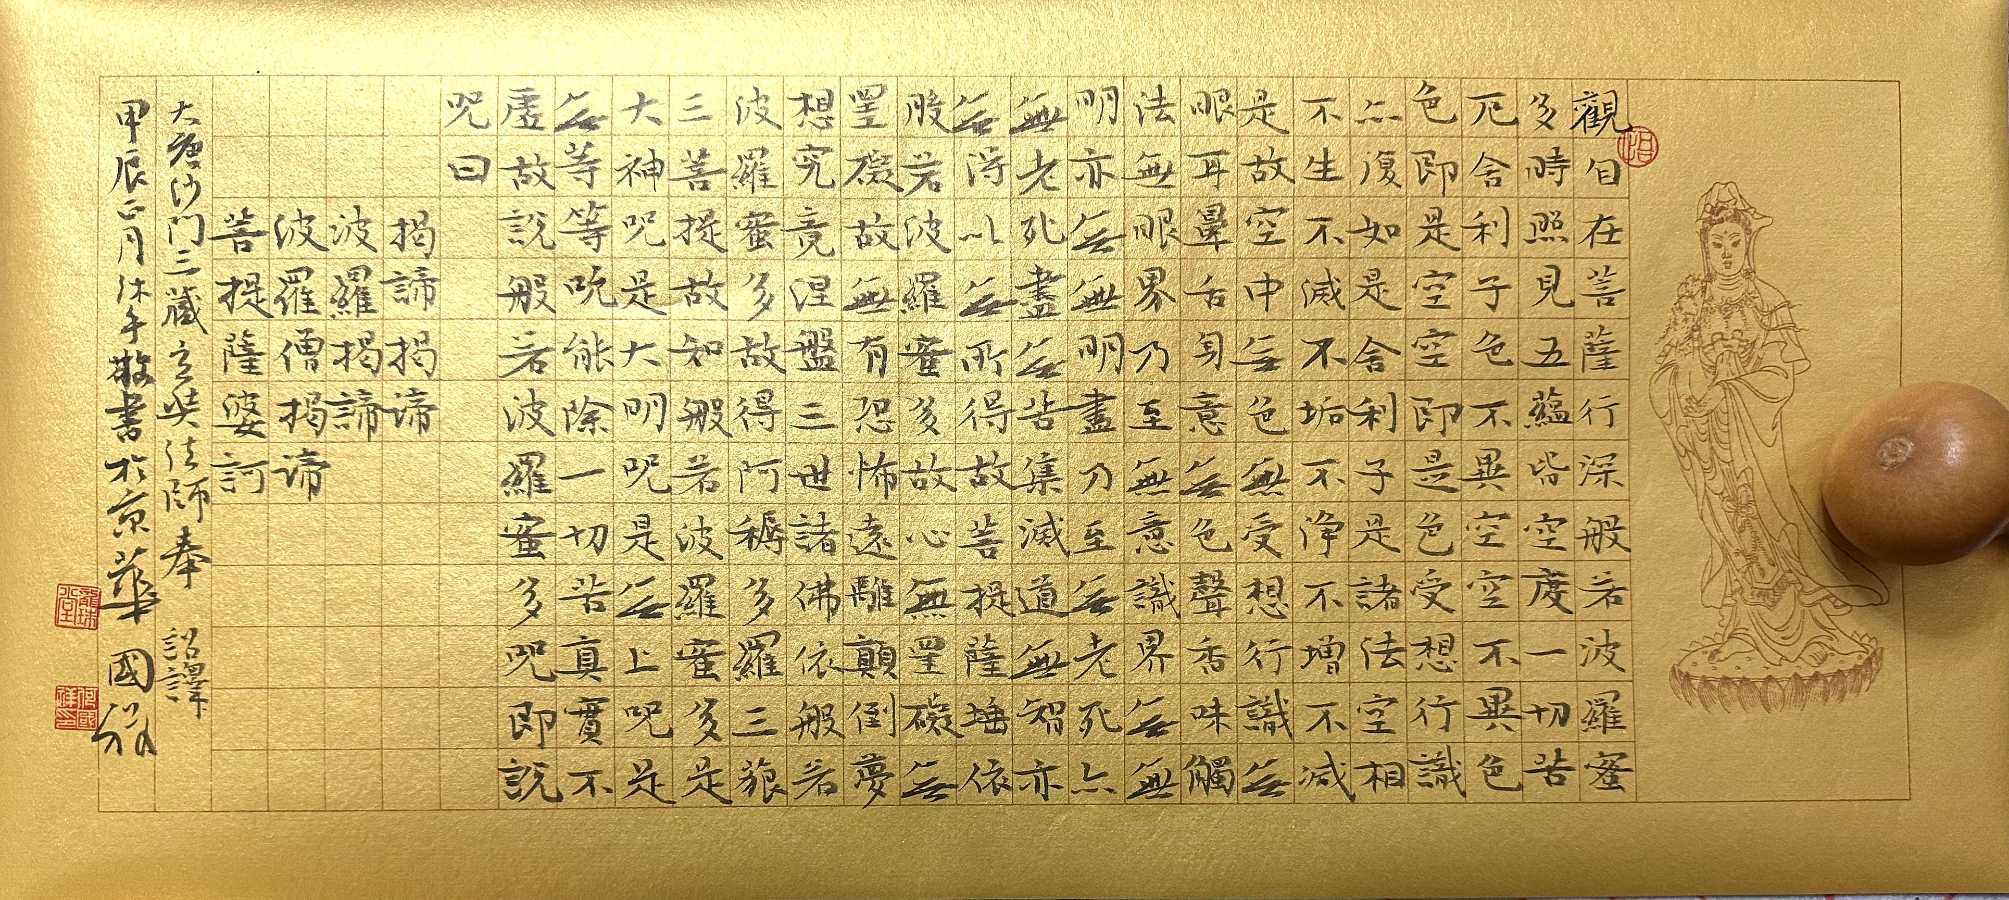 觀自在菩薩行深般若波羅蜜
多時照見五蘊皆空度一切苦
厄舍利子色不異空空不異色
色即是空空即是色受想行識
亦復如是舍利子是諸法空相
不生不滅不垢不淨不增不減
是故空中無色無受想行識無
眼耳鼻舌身意無色聲香味觸
法無眼界乃至無意識界無無
明亦無無明盡乃至無老死亦
無老死盡無苦集滅道無智亦
無得以無所得故菩提薩埵依
般若波羅蜜多故心無罣礙無
罣礙故無有恐怖遠離顛倒夢
想究竟涅盤三世諸佛依般若
波羅蜜多故得阿耨多羅三藐
三菩提故知般若波羅蜜多是
大神咒是大明咒是無上咒是
無等等咒能除一切苦真實不
虛故說般若波羅蜜多咒即說
咒曰
揭諦揭諦
波羅揭諦
波羅僧揭諦
菩提薩婆訶
大唐沙门三藏玄奘法師奉 詔譯
甲辰正月沐手敬書於京華國祥